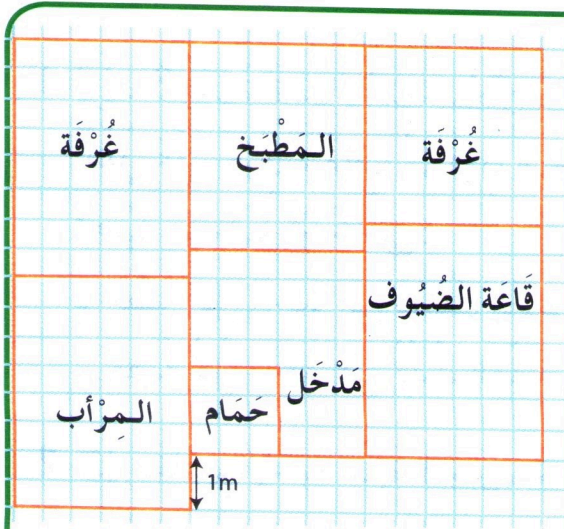 غُرْفَة
المَطْبَخ
غُرْفَة
قَاعَة الضُيُوف
مَدْخَل
حَمَام
المِرْأب
1m